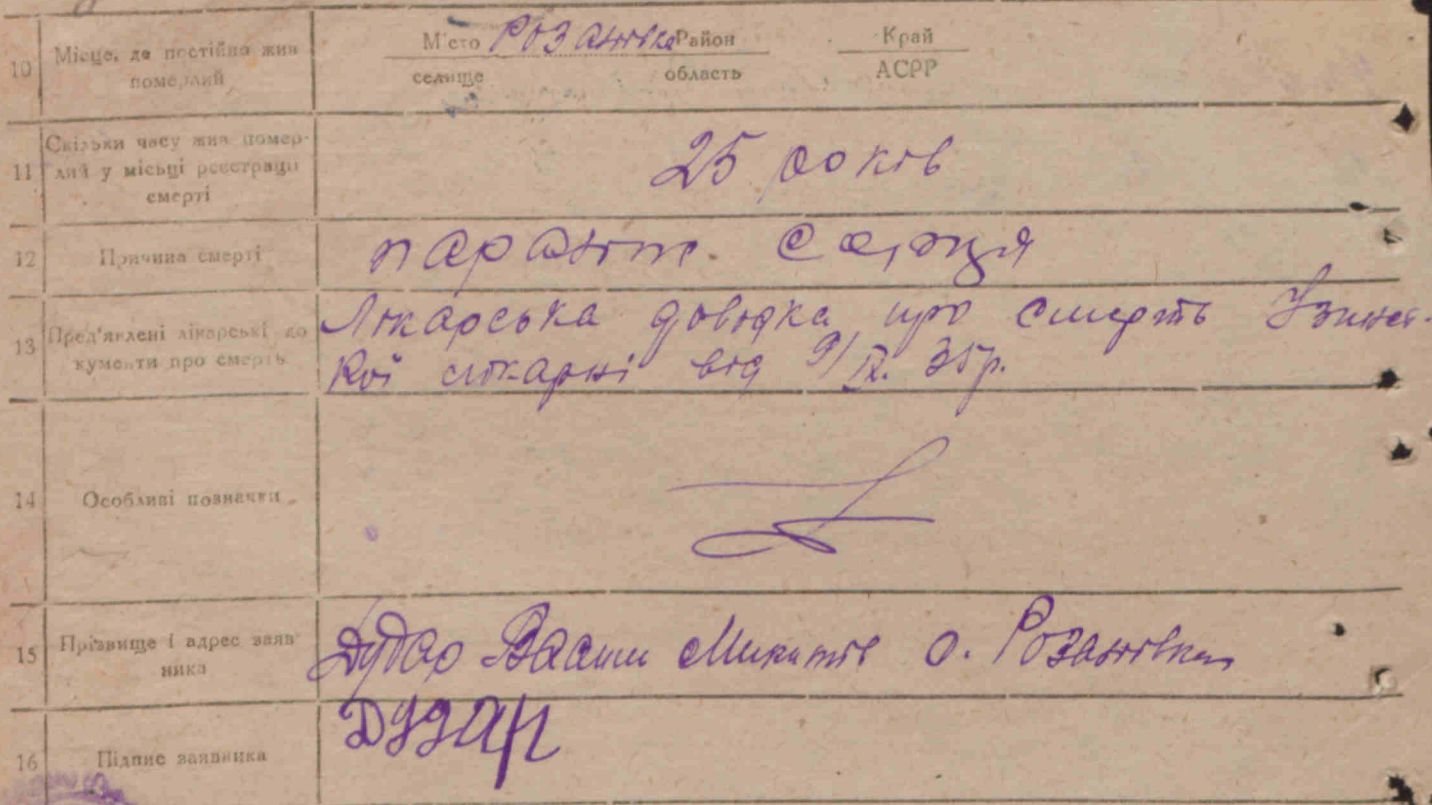 10 Місце, де постійно жив померлий
Місто Розанівка Район
селище область
Край
АСРР
11 Скільки часу жив помер-
лий у місьці реєстрації
смерті
25 років
12 Причина смерті
параліч. серця
13 Пред'явлені лікарські до
кументи про смерть
Лікарська довідка про смерть
кої лікарні від 9/IX. 35р.
14 Особливі позначки
15 Прізвище і адрес заяв
ника
Дудар Васили Микитів с. Розанівка
16 Підпис заявника
Дудар